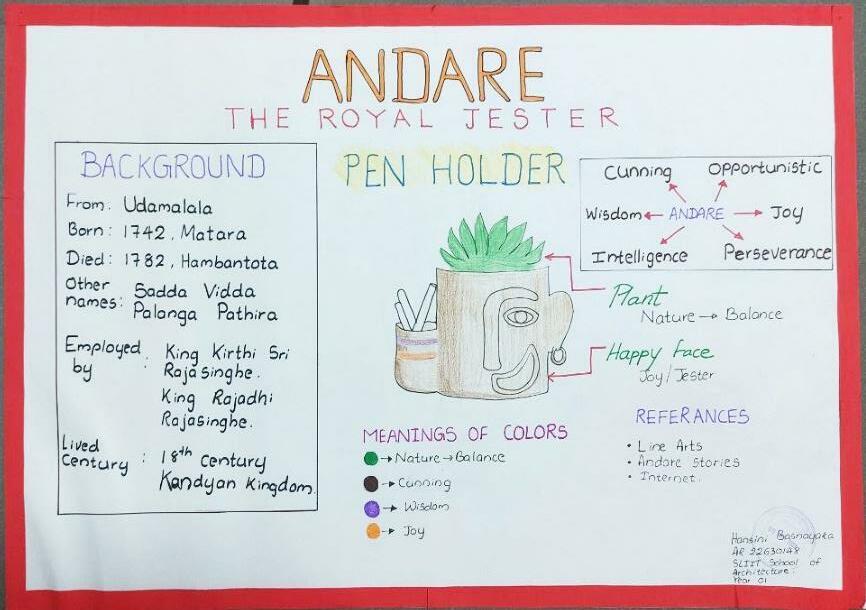 ANDARE
THE ROYAL JESTER
BACKGROUND
From: Udamalala
Born: 1742, Matara
Died: 1782, Hambantota
Other names: Sadda Vidda
Palanga Pathira
Employed by : King Kirthi Sri
Rajasinghe.
King Rajadhi
Rajasinghe.
Lived Century : 18th Century
Kandyan Kingdom.
PEN HOLDER
Cunning Opportunistic
Wisdom ← ANDARE → Joy
Intelligence Perseverance
Plant
Nature → Balance
Happy face
Joy/Jester
MEANINGS OF COLORS
→ Nature → Balance
→ Cunning
→ Wisdom
→ Joy
REFERANCES
• Line Arts
• Andare Stories
• Internet.
Hansini Basnayaka
AR 22630148
SLIIT School of
Architecture.
Year 01